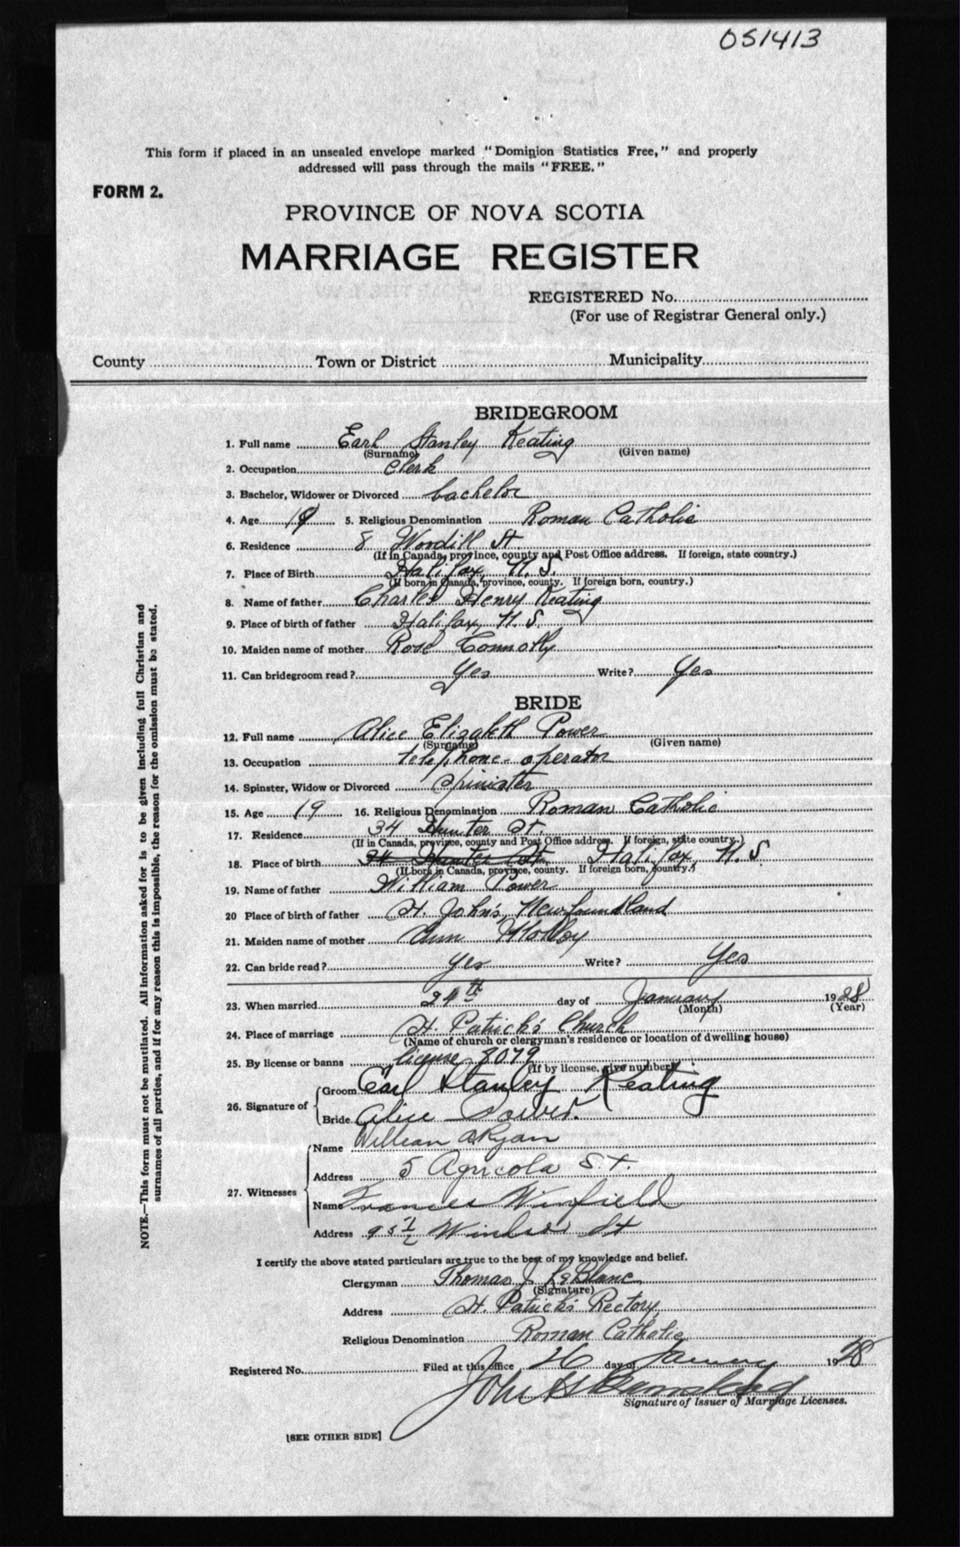 051413
This form if placed in an unsealed envelope marked "Dominion Statistics Free," and properly
addressed will pass through the mails "FREE."
FORM 2.
PROVINCE OF NOVA SCOTIA
MARRIAGE REGISTER
REGISTERED No.
(For use of Registrar General only.)
County Town or District Municipality
BRIDEGROOM
1. Full name Earl Stanley Keating
(Surname) (Given name)
2. Occupation Clerk
3. Bachelor, Widower or Divorced bachelor
4. Age 19 5. Religious Denomination Roman Catholic
6. Residence 8 St
(If in Canada, province, county and Post Office address. If foreign, state country.)
7. Place of Birth Halifax, N.S.
(If born in Canada, province, county. If foreign born, country.)
8. Name of father Charles Henry Keating
9. Place of birth of father Halifax, N.S.
10. Maiden name of mother Rose Connolly
11. Can bridegroom read? Yes Write? Yes
BRIDE
12. Full name Alice Elizabeth Power
(Surname) (Given name)
13. Occupation telephone operator
14. Spinster, Widow or Divorced Spinster
15. Age 19 16. Religious Denomination Roman Catholic
17. Residence 34 Hunter St.
(If in Canada, province, county and Post Office address. If foreign, state country.)
18. Place of birth 34 Hunter St. Halifax, N.S.
(If born in Canada, province, county. If foreign born, country.)
19. Name of father William Power
20 Place of birth of father St. John's, Newfoundland
21. Maiden name of mother Ann
22. Can bride read? Yes Write? Yes
23. When married 24th day of January 1928
(Month) (Year)
24. Place of marriage St. Patrick's Church
(Name of church or clergyman's residence or location of dwelling house)
25. By license or banns license 8079
(If by license, give number)
26. Signature of Groom Earl Stanley Keating
Bride Alice Power.
27. Witnesses Name William A Ryan
Address 5 Agricola St.
Name Frances Winfield
Address 95½ Windsor St
I certify the above stated particulars are true to the best of my knowledge and belief.
Clergyman Thomas J. LeBlanc
(Signature)
Address St. Patrick's Rectory
Religious Denomination Roman Catholic
Registered No. Filed at this office 26 day of January 1928
John
Signature of Issuer of Marriage Licenses.
[SEE OTHER SIDE]
NOTE.—This form must not be mutilated. All information asked for is to be given including full Christian and
surnames of all parties, and if for any reason this is impossible, the reason for the omission must be stated.